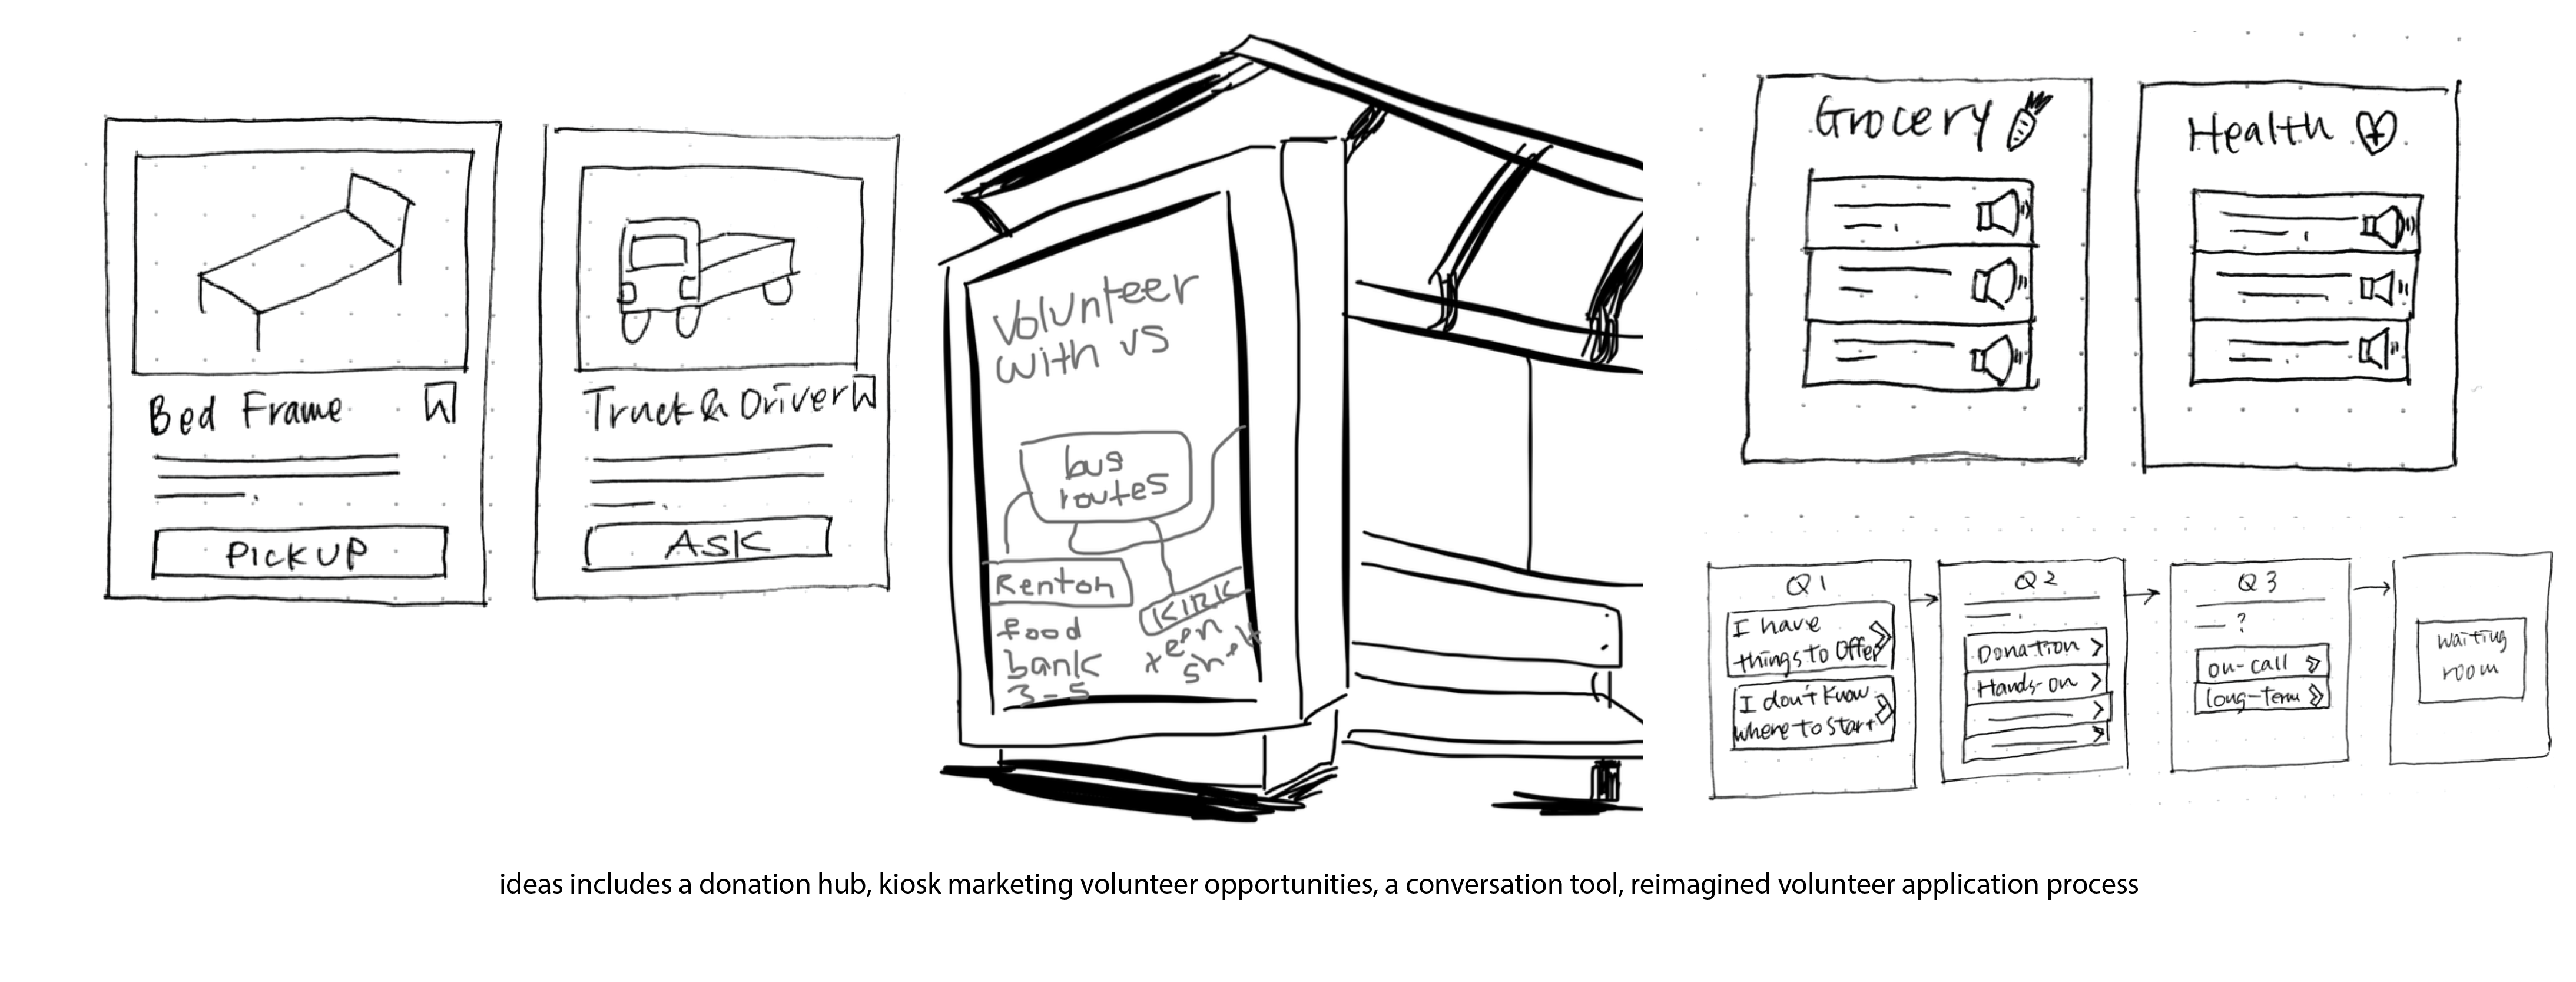 Bed Frame
PICKUP
Truck & Driver
ASK
Volunteer
with us
bus
routes
Renton
food
bank
3-5
KIRK
teen
Grocery
Health
Q1
I have
things to Offer
I don't know
where to start
Q2
Donation
Hands-on
Q3
?
on-call
long-term
waiting
room
ideas includes a donation hub, kiosk marketing volunteer opportunities, a conversation tool, reimagined volunteer application process